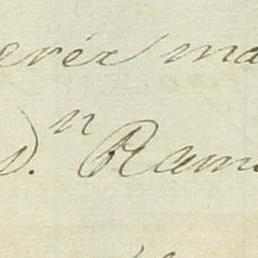 erér ma
D.n Ram